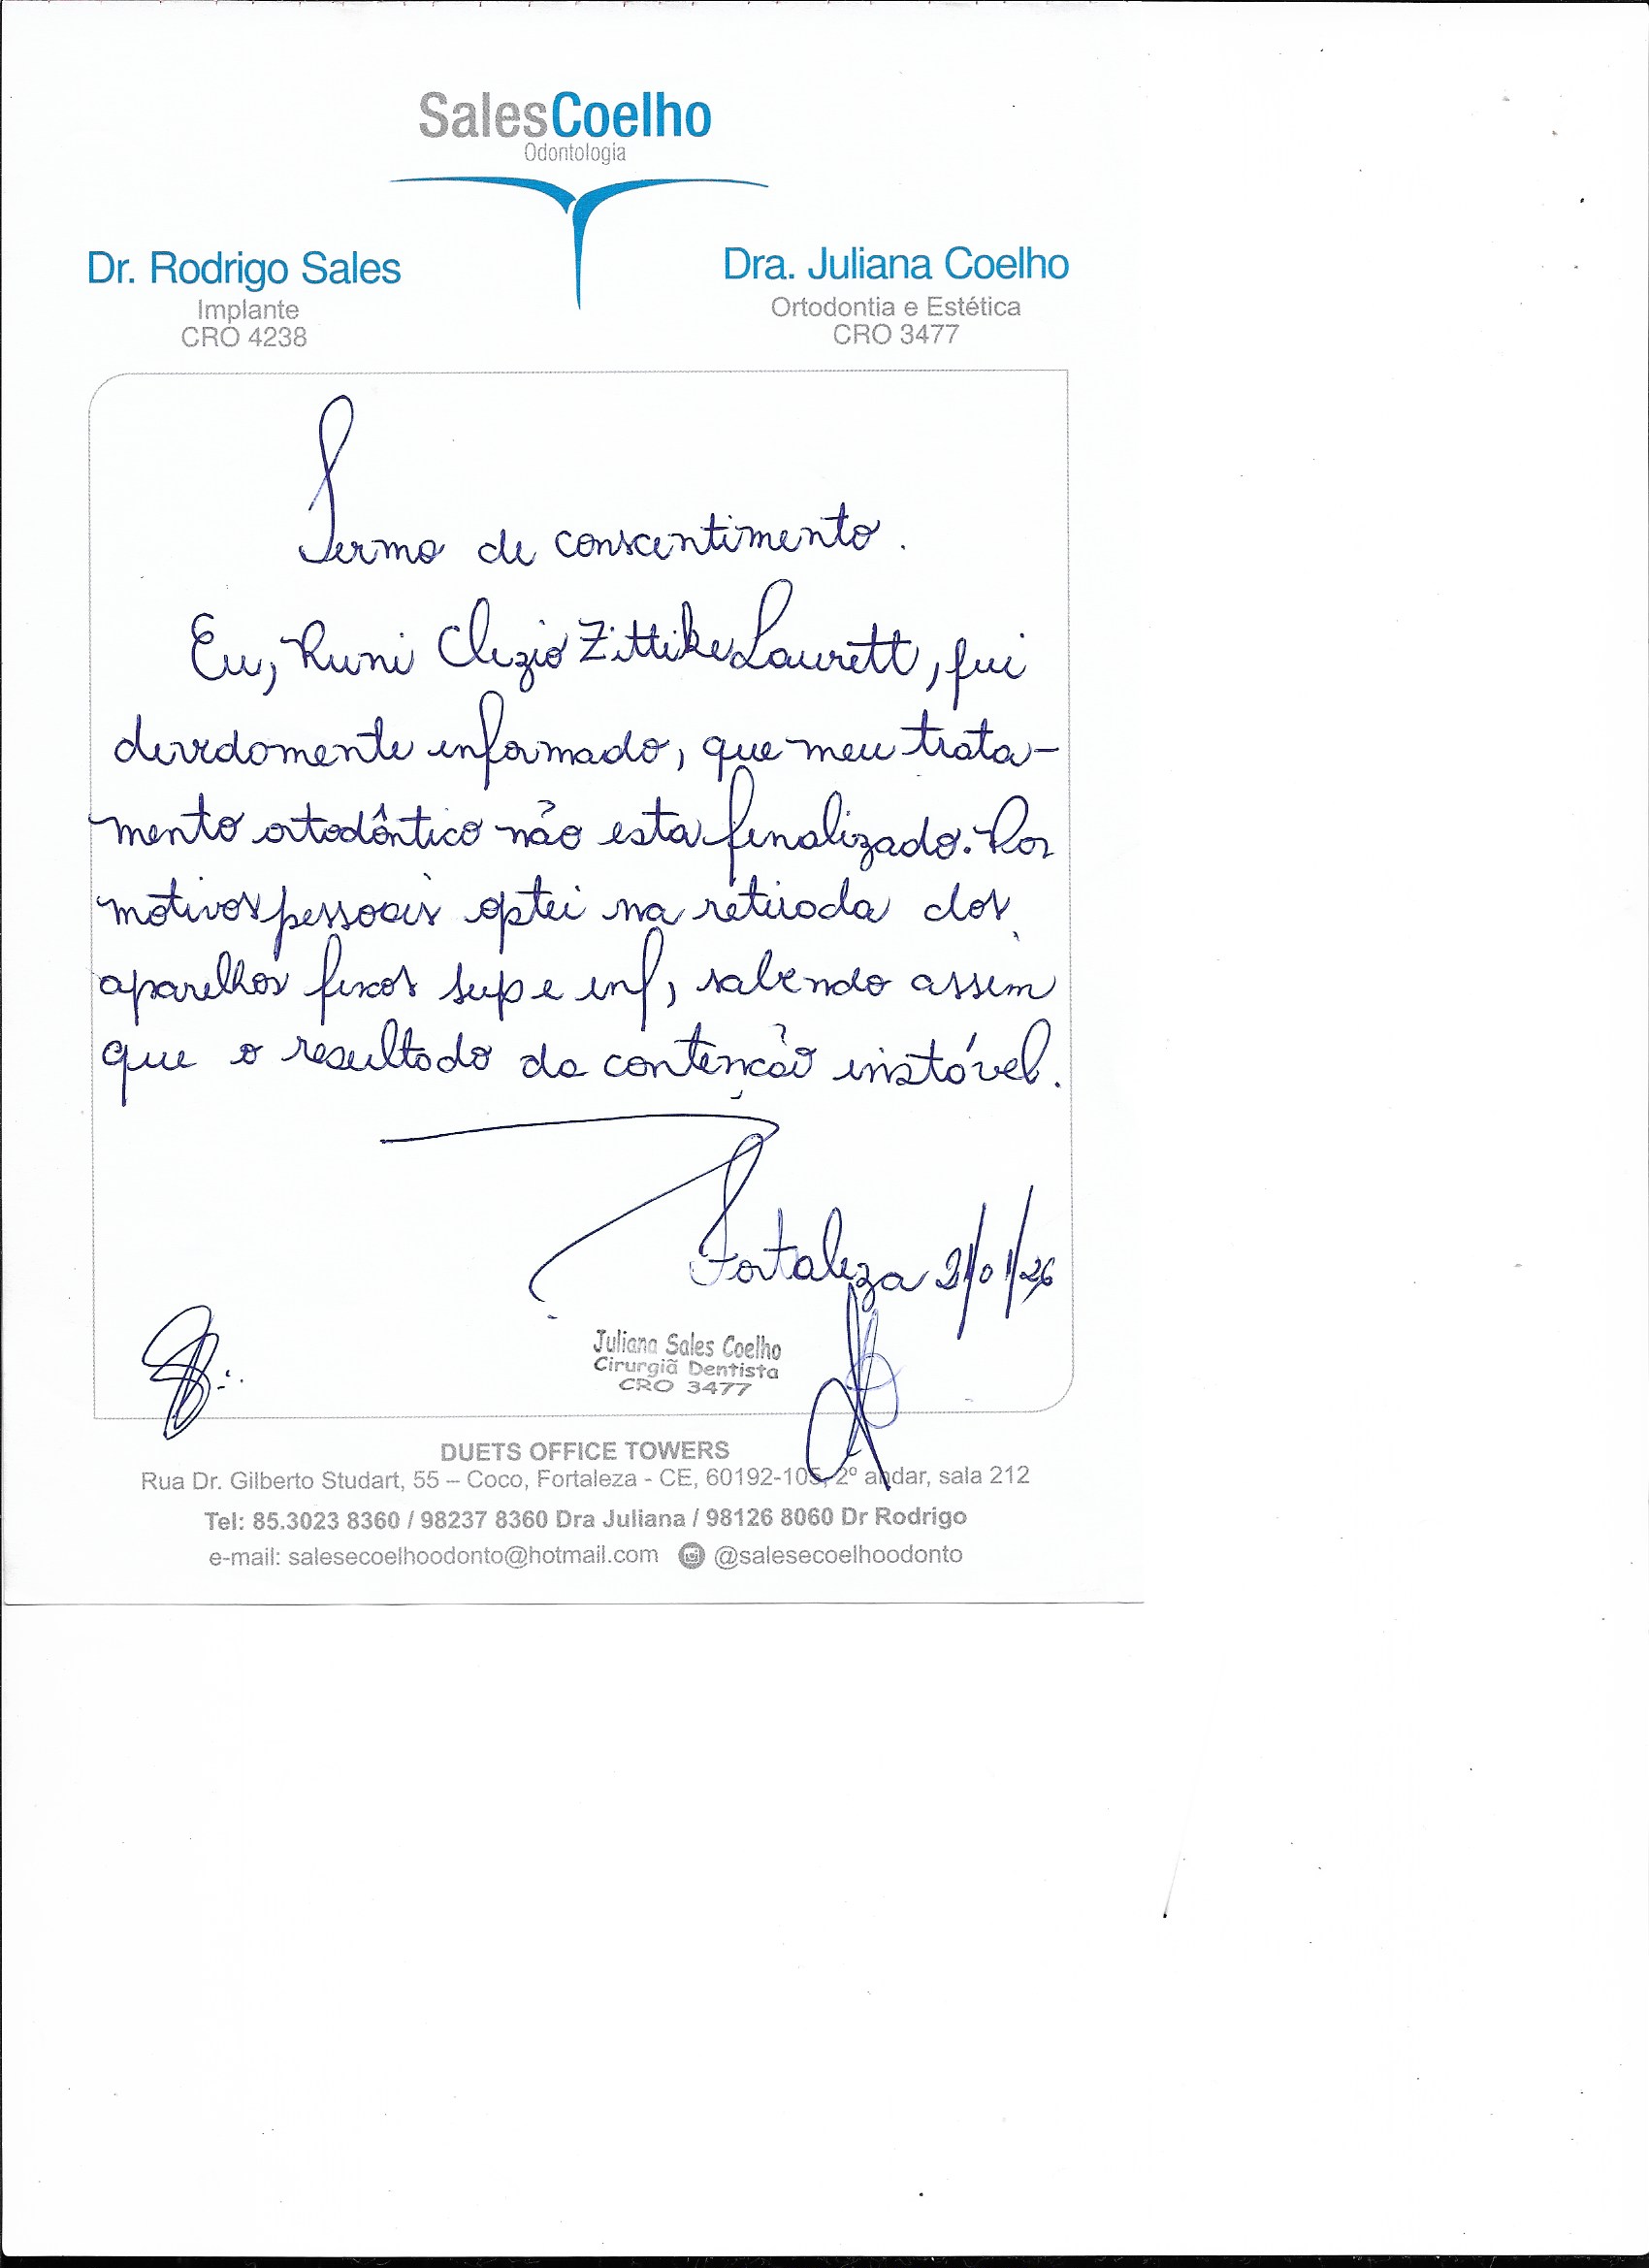 SalesCoelho
Odontologia
Dr. Rodrigo Sales
Implante
CRO 4238
Dra. Juliana Coelho
Ortodontia e Estética
CRO 3477
Termo de conscentimento.
Eu, Runi Clezio Zittike Laurett, fui
devidamente informado, que meu trata-
mento ortodôntico não esta finalizado. Por
motivos pessoais optei na retirada dos
aparelhos fixos sup e inf, sabendo assim
que o resultado da contenção instável.
Fortaleza 21/01/26
Juliana Sales Coelho
Cirurgiã Dentista
CRO 3477
DUETS OFFICE TOWERS
Rua Dr. Gilberto Studart, 55 – Coco, Fortaleza - CE, 60192-105, 2º andar, sala 212
Tel: 85.3023 8360 / 98237 8360 Dra Juliana / 98126 8060 Dr Rodrigo
e-mail: salesecoelhoodonto@hotmail.com @salesecoelhoodonto